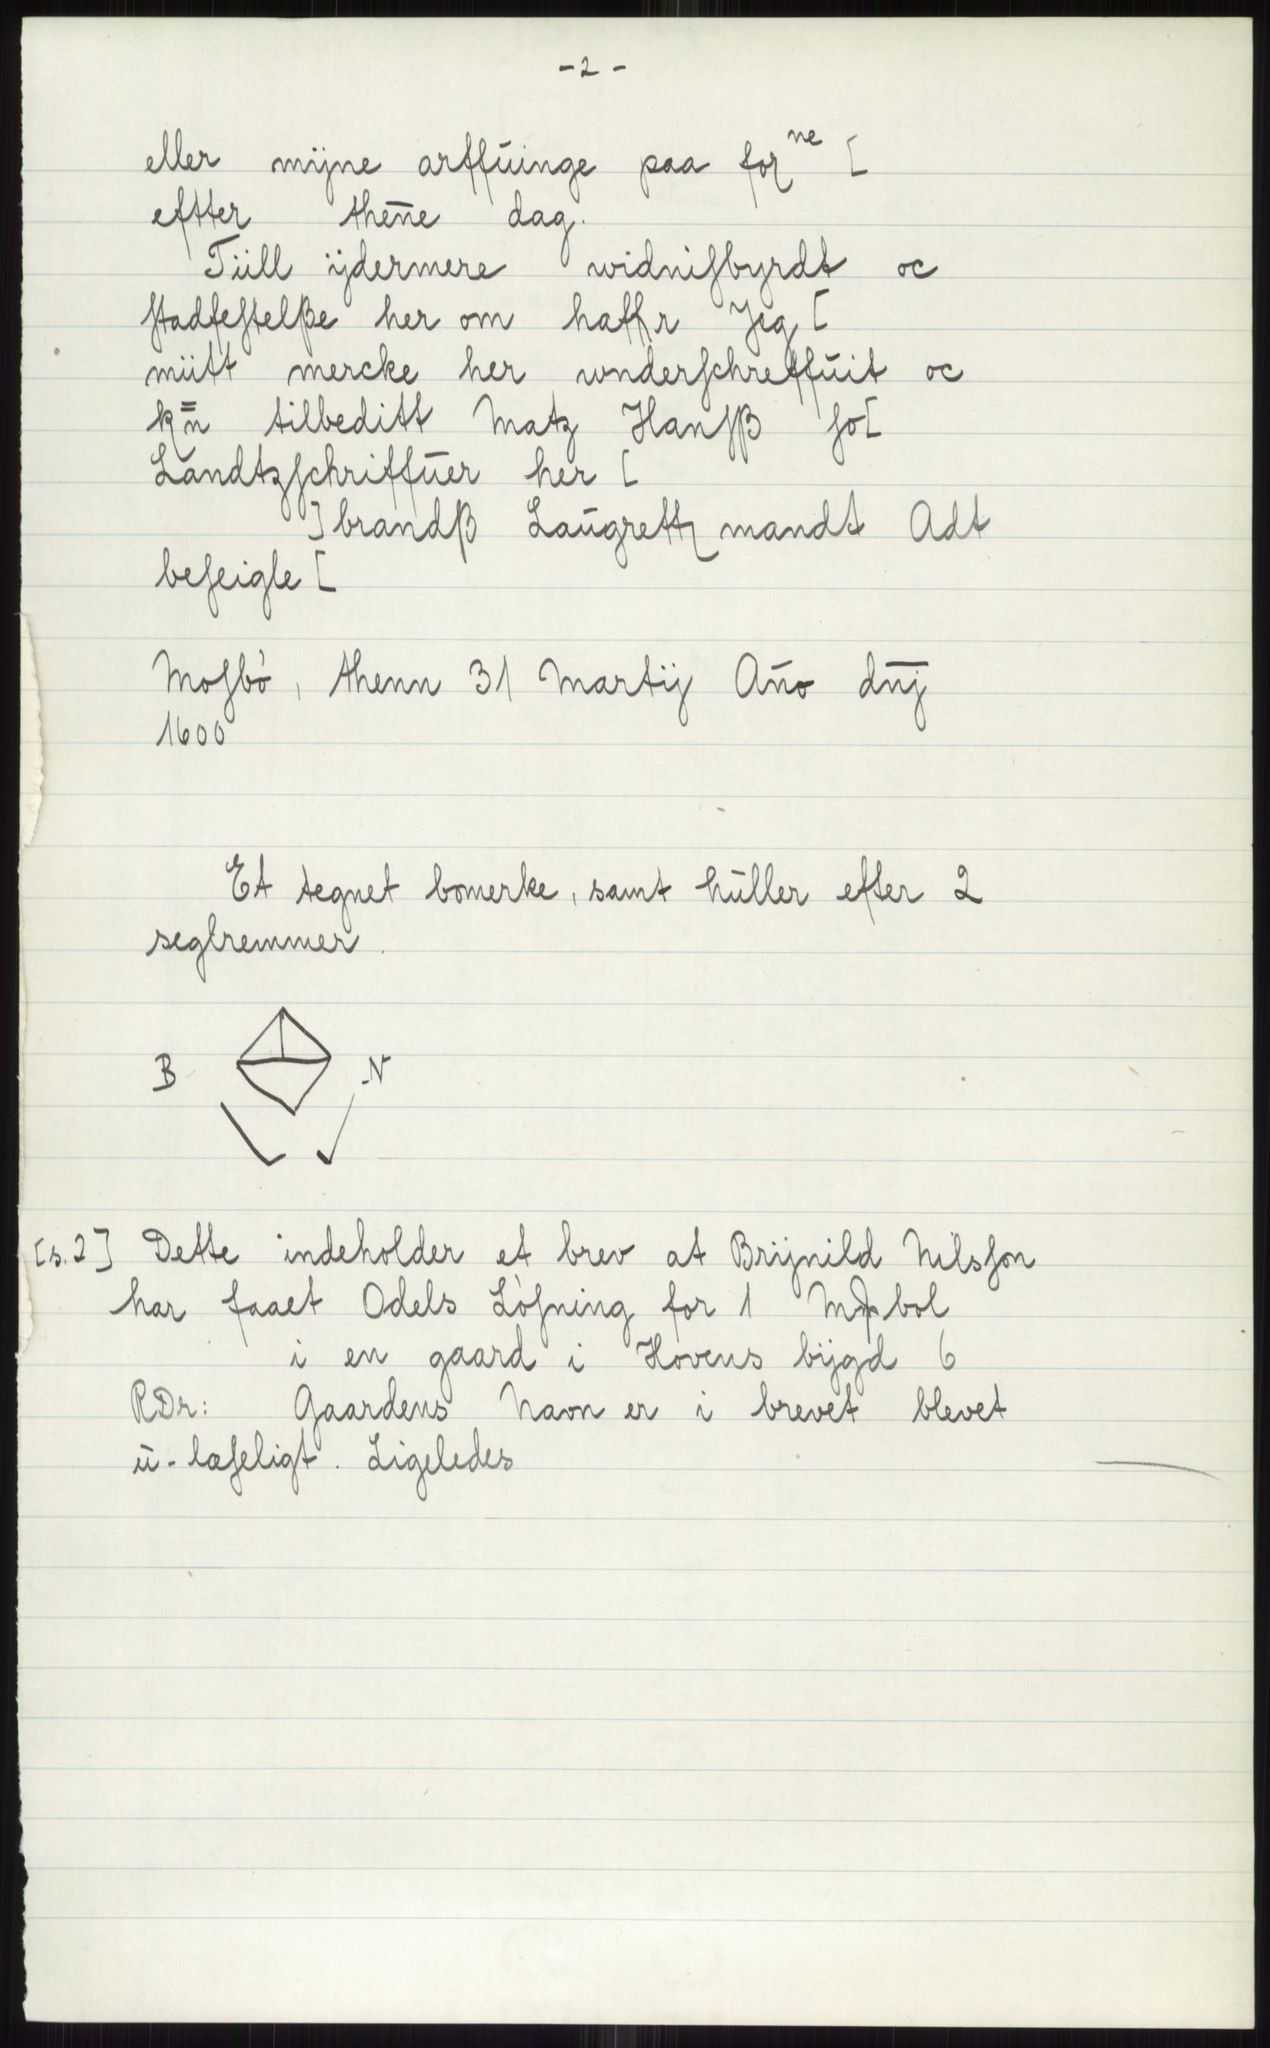 - 2 -
eller mijne arffuinge paa forne [
eftter thēne dag.
Tüll ijdermere widniſbyrdt oc
ſtadfeſtelße her om haffr Jeg [
mütt mercke her wnderſchreffuit oc
tilbeditt Matz Hanſß ſo[
Landtzſchriffuer her [
]brandß Laugrettz mandt Adt
beſeigle [
Moſbö, thenn 31 Martij Año dnj
1600
Et tegnet bomerke, samt huller efter 2
seglremmer.
B N
[s.2] Dette indeholder et brev at Brijnild Nilsſon
har faaet Odels Löſning for 1 bol
i en gaard i Hovens bijgd 6
RDr: Gaardens Navn er i brevet blevet
u-læſeligt. Ligeledes